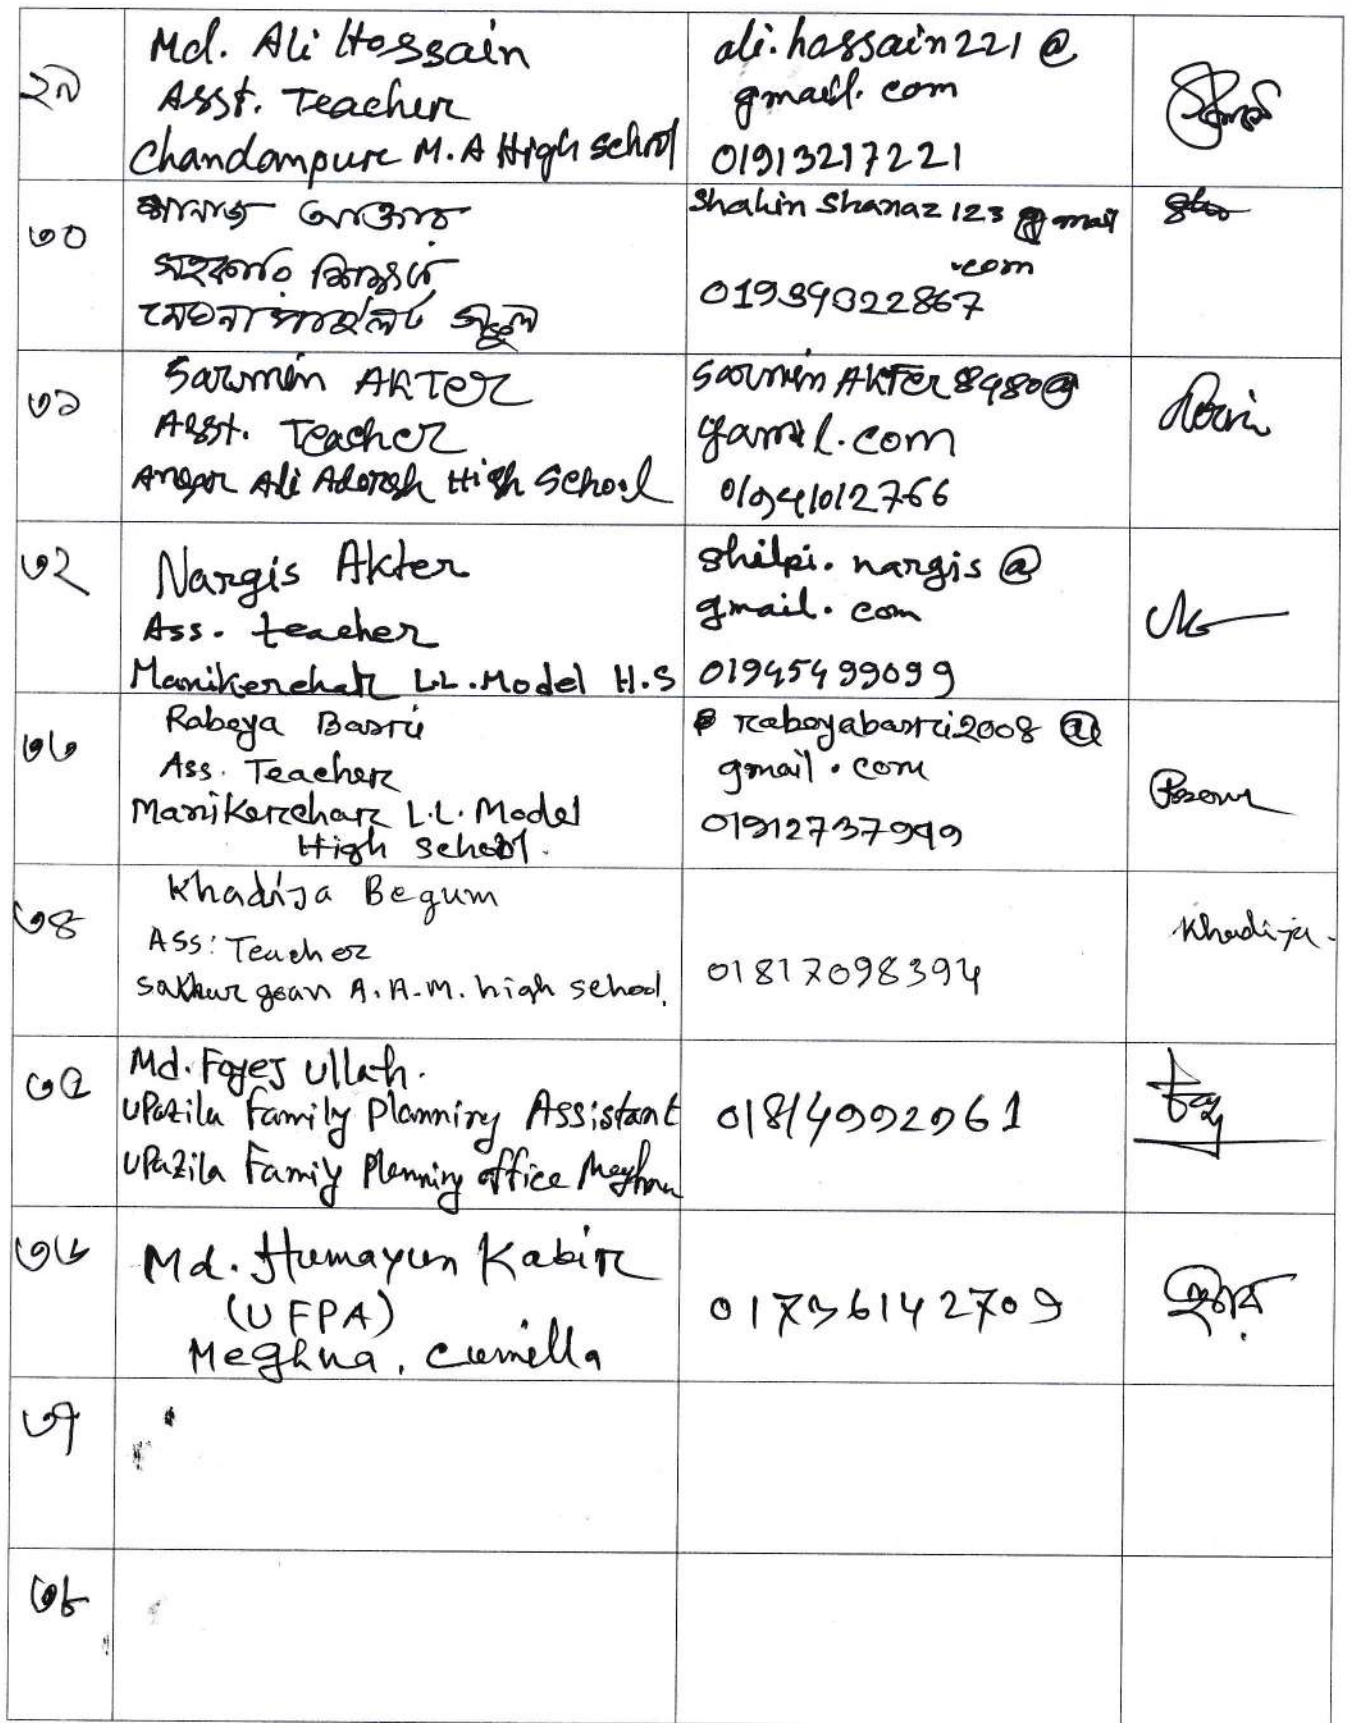 ২৯
Md. Ali Hossain
Asst. Teacher
Chandanpure M.A High School
ali.hossain221@
gmail.com
01913217221
৩০
আক্তার
সহকারি শিক্ষক
স্কুল
Shahin Shanaz 123@gmail
.com
01939322867
৩১
Sarmin AKTER
Asst. Teacher
Ali Adorsh High School
Sarmin AKTER 8980@
gamil.com
01941012766
৩২
Nargis Akter
Ass. teacher
Manikerchar L.L.Model H.S
shilpi.nargis@
gmail.com
01945499099
৩৩
Rabeya Basri
Ass. Teacher
Manikerchar L.L. Model
High School.
rabeyabasri2008@
gmail.com
01912737949
৩৪
Khadija Begum
ASS: Teacher
A.A.M. high school.
01817098394
Khadija.
৩৫
Md. Foyej ullah.
UPazila Family Planning Assistant
UPazila Family Planning office Meghna
01814992961
৩৬
Md. Humayun Kabir
(UFPA)
Meghna, Cumilla
01736142709
৩৭
৩৮